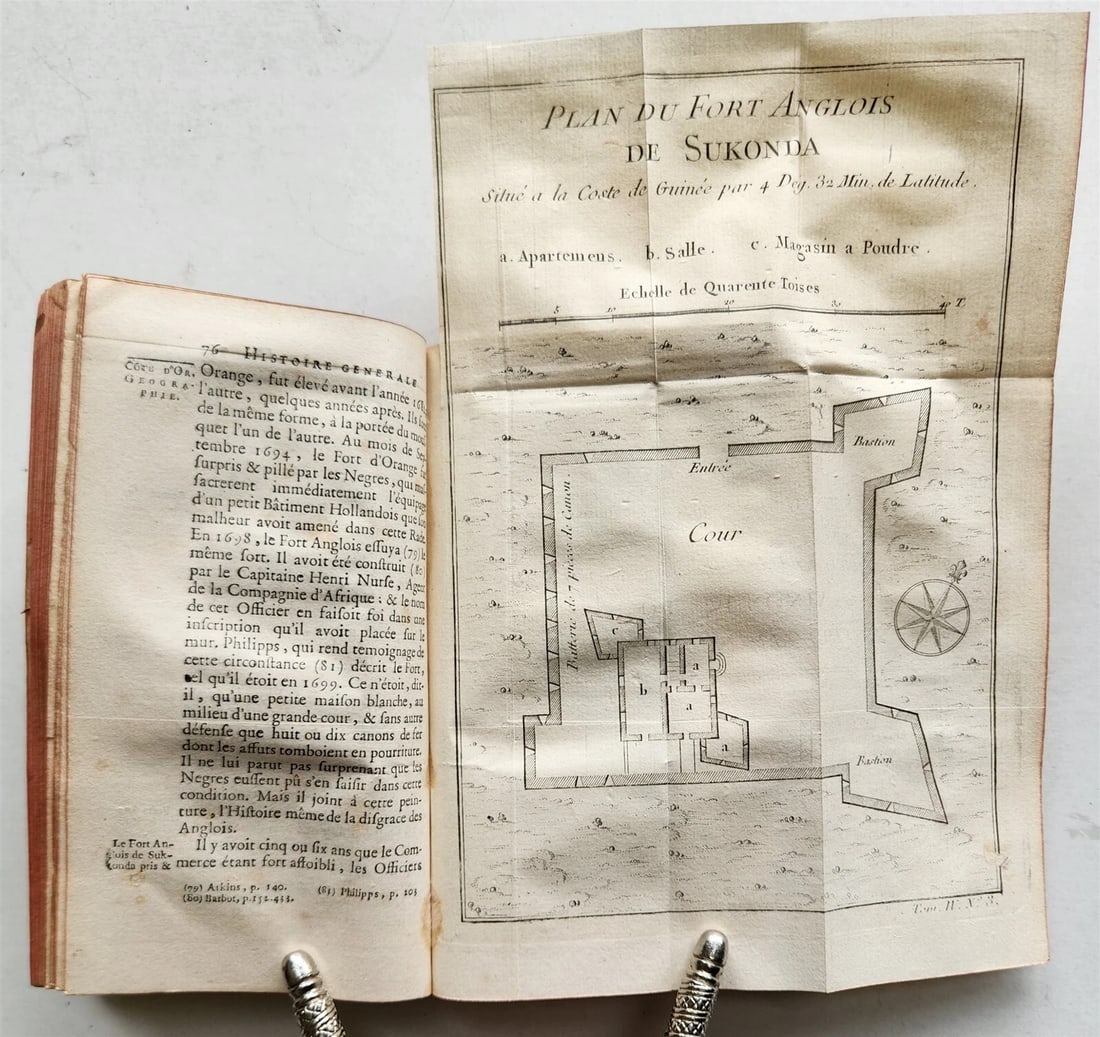 76 HISTOIRE GENERALE
CÔTE D'OR.
GEOGRA-
PHIE.
Orange, fut élevé avant l'année
l'autre, quelques années après. Ils
de la même forme, à la portée du
quer l'un de l'autre. Au mois de Sep
tembre 1694, le Fort d'Orange
surpris & pillé par les Negres, qui
sacrerent immédiatement l'équipage
d'un petit Bâtiment Hollandois que
malheur avoit amené dans cette Rade
En 1698, le Fort Anglois essuya (79) le
même sort. Il avoit été construit
par le Capitaine Henri Nurse, Agent
de la Compagnie d'Afrique; & le nom
de cet Officier en faisoit foi dans une
inscription qu'il avoit placée sur le
mur. Philipps, qui rend temoignage de
cette circonstance (81) décrit le Fort,
tel qu'il étoit en 1699. Ce n'étoit, dit-
il, qu'une petite maison blanche, au
milieu d'une grande cour, & sans autre
défense que huit ou dix canons de fer
dont les affuts tomboient en pourriture.
Il ne lui parut pas surprenant que les
Negres eussent pû s'en saisir dans cette
condition. Mais il joint à cette pein-
ture, l'Histoire même de la disgrace des
Anglois.
Le Fort An-
glois de Suk-
konda pris &
Il y avoit cinq ou six ans que le Com-
merce étant fort affoibli, les Officiers
(79) Atkins, p. 140. (81) Philipps, p. 203
(80) Barbot, p.
PLAN DU FORT ANGLOIS
DE SUKONDA
Situé a la Coste de Guinée par 4 Deg. 32 Min. de Latitude.
a. Apartemens. b. Salle. c. Magasin a Poudre.
Echelle de Quarente Toises
5 10 20 30 40 T.
Bastion
Entrée
Cour
Batterie de 7 pieces de Canon
c
a
b
a
a
Bastion
Tom. IV. N.º 8.